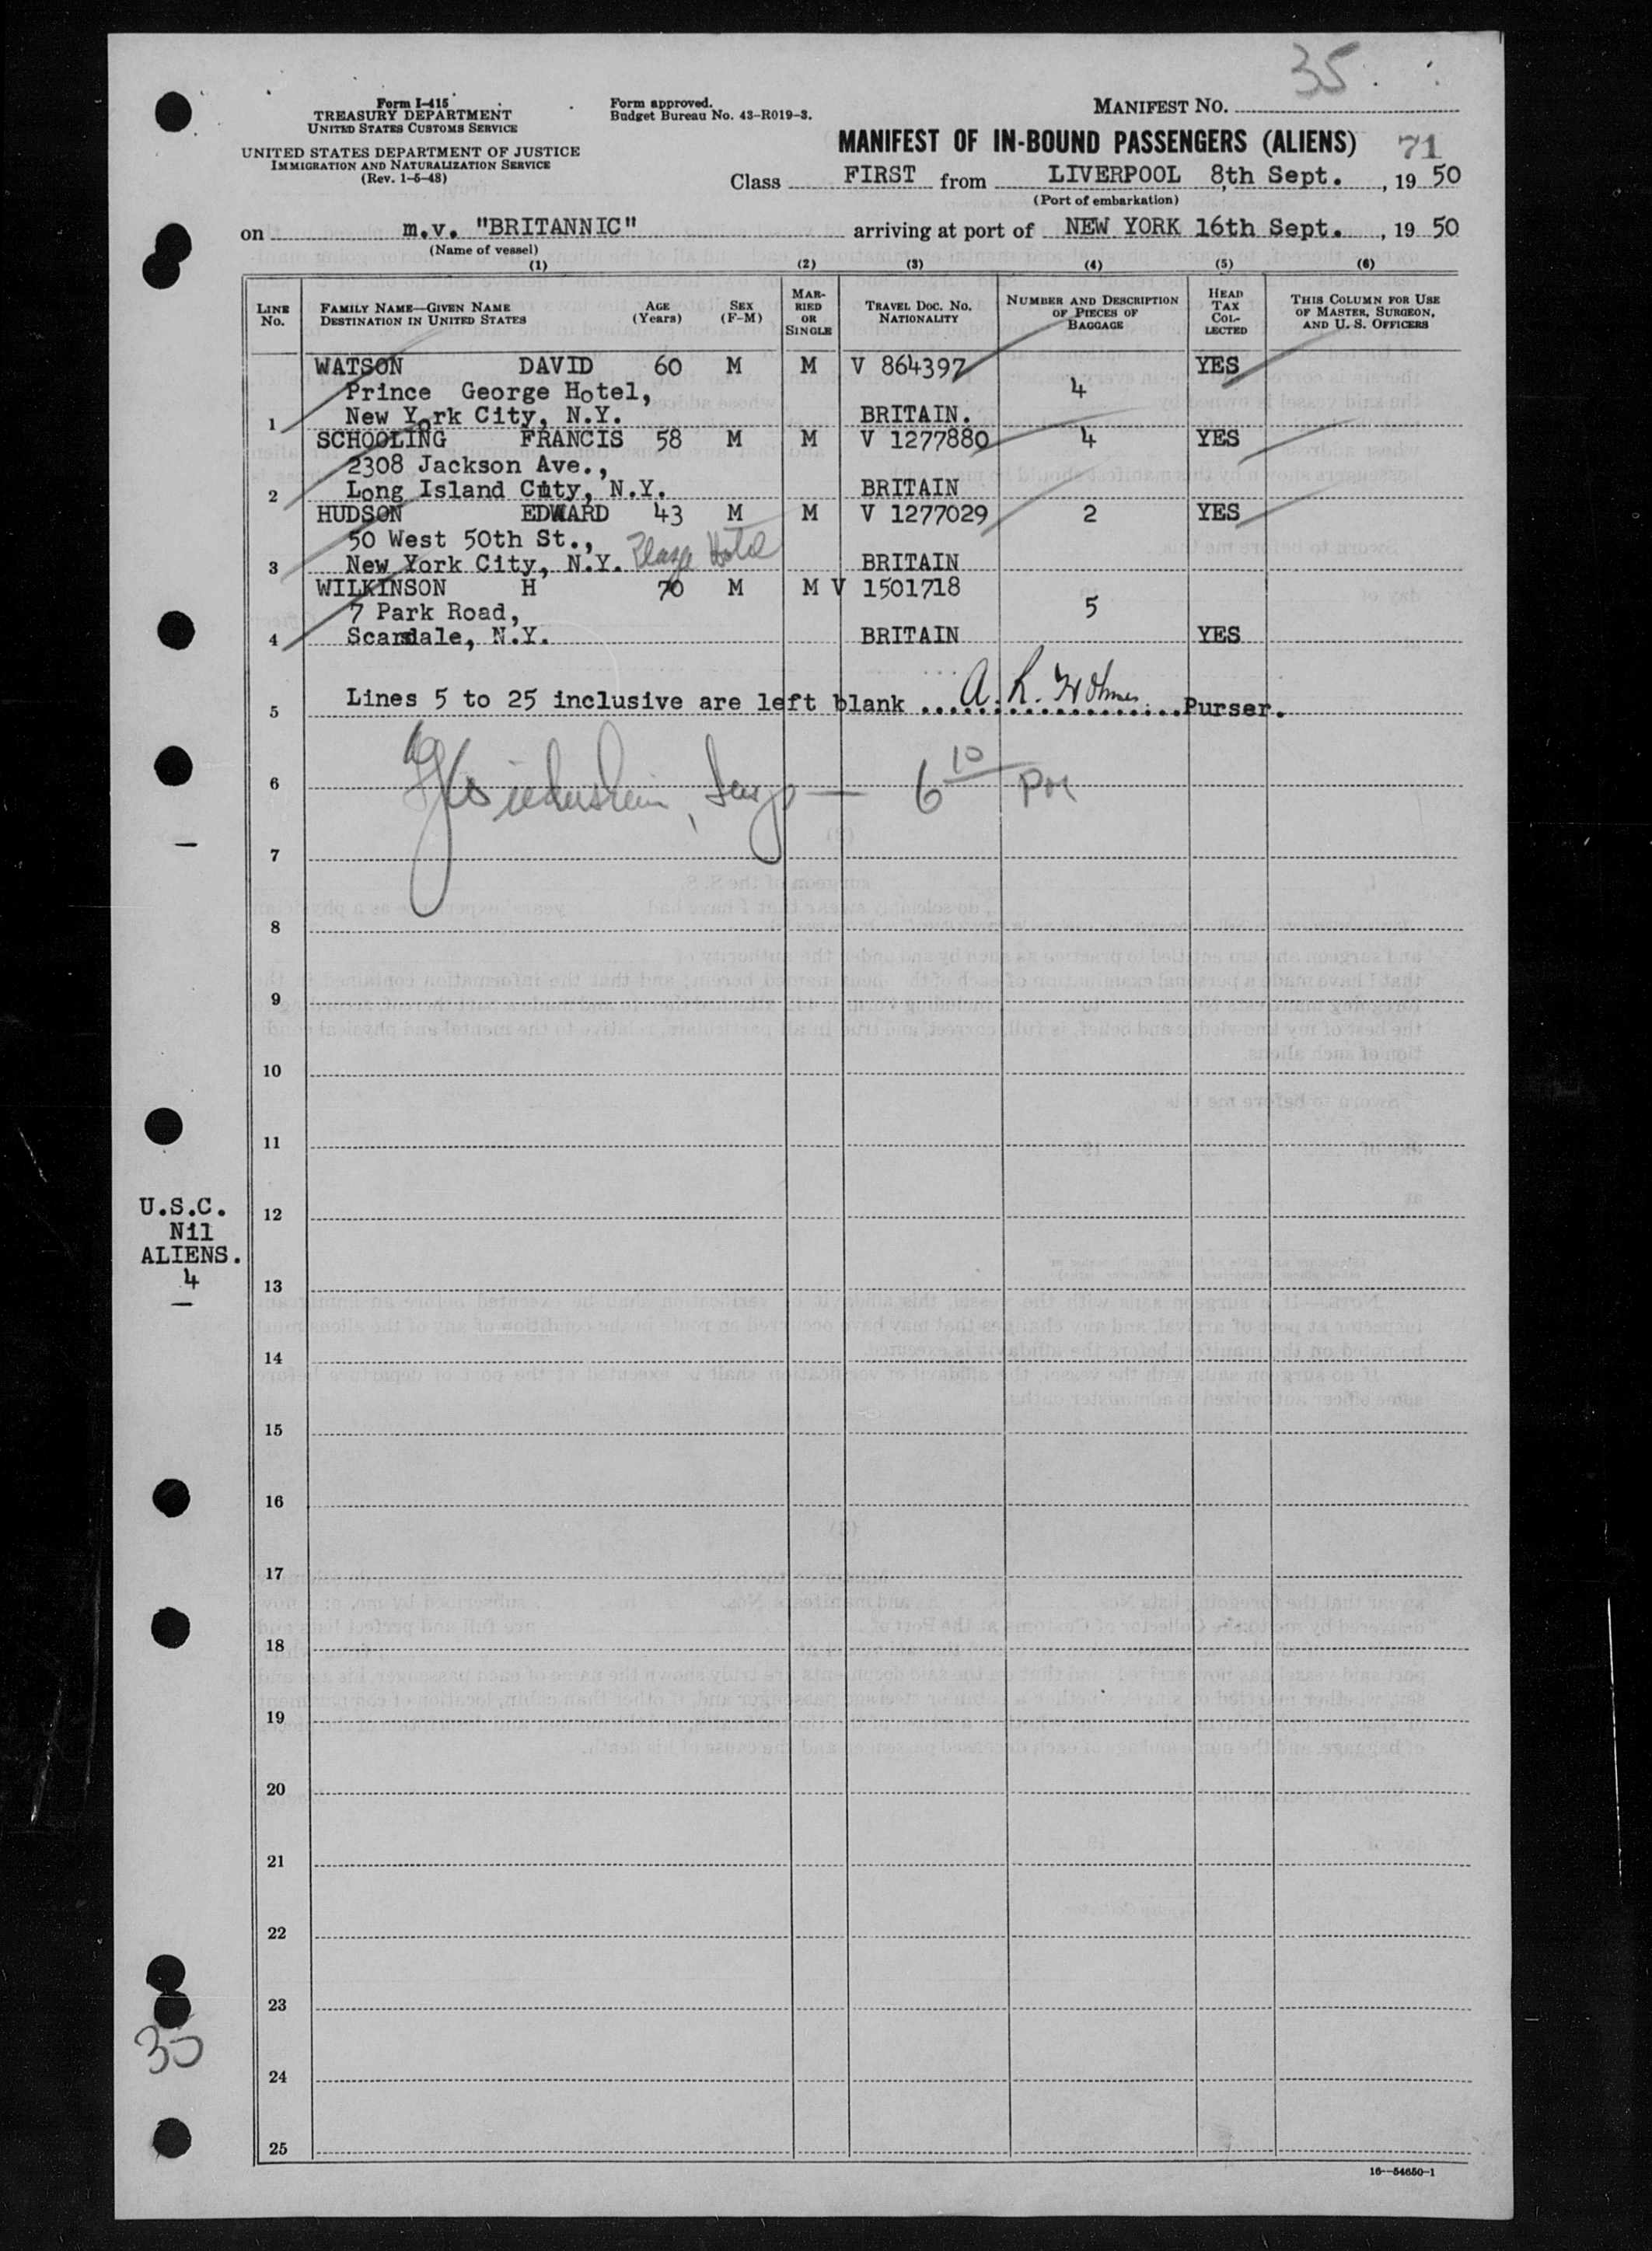 35
Form I-415
TREASURY DEPARTMENT
UNITED STATES CUSTOMS SERVICE
UNITED STATES DEPARTMENT OF JUSTICE
IMMIGRATION AND NATURALIZATION SERVICE
(Rev. 1-5-48)
Form approved.
Budget Bureau No. 43-R019-3.
MANIFEST NO.
MANIFEST OF IN-BOUND PASSENGERS (ALIENS) 71
Class FIRST from LIVERPOOL 8th Sept. , 19 50
(Port of embarkation)
on m.v. "BRITANNIC" arriving at port of NEW YORK 16th Sept. , 19 50
(Name of vessel)
(1) (2) (3) (4) (5) (6)
LINE No. FAMILY NAME—GIVEN NAME DESTINATION IN UNITED STATES AGE (Years) SEX (F-M) MARRIED OR SINGLE TRAVEL DOC. NO. NATIONALITY NUMBER AND DESCRIPTION OF PIECES OF BAGGAGE HEAD TAX COLLECTED THIS COLUMN FOR USE OF MASTER, SURGEON, AND U. S. OFFICERS
WATSON DAVID 60 M M V 864397 YES
Prince George Hotel, 4
1 New York City, N.Y. BRITAIN.
SCHOOLING FRANCIS 58 M M V 1277880 4 YES
2308 Jackson Ave.,
2 Long Island City, N.Y. BRITAIN
HUDSON EDWARD 43 M M V 1277029 2 YES
50 West 50th St.,
3 New York City, N.Y. Plaza Hotel BRITAIN
WILKINSON H 70 M M V 1501718
7 Park Road, 5
4 Scarsdale, N.Y. BRITAIN YES
5 Lines 5 to 25 inclusive are left blank Purser.
6 6 10 PM
7
8
9
10
11
U.S.C.
12
Nil
ALIENS.
4
13
14
15
16
17
18
19
20
21
22
23
35
24
25
16—54650-1